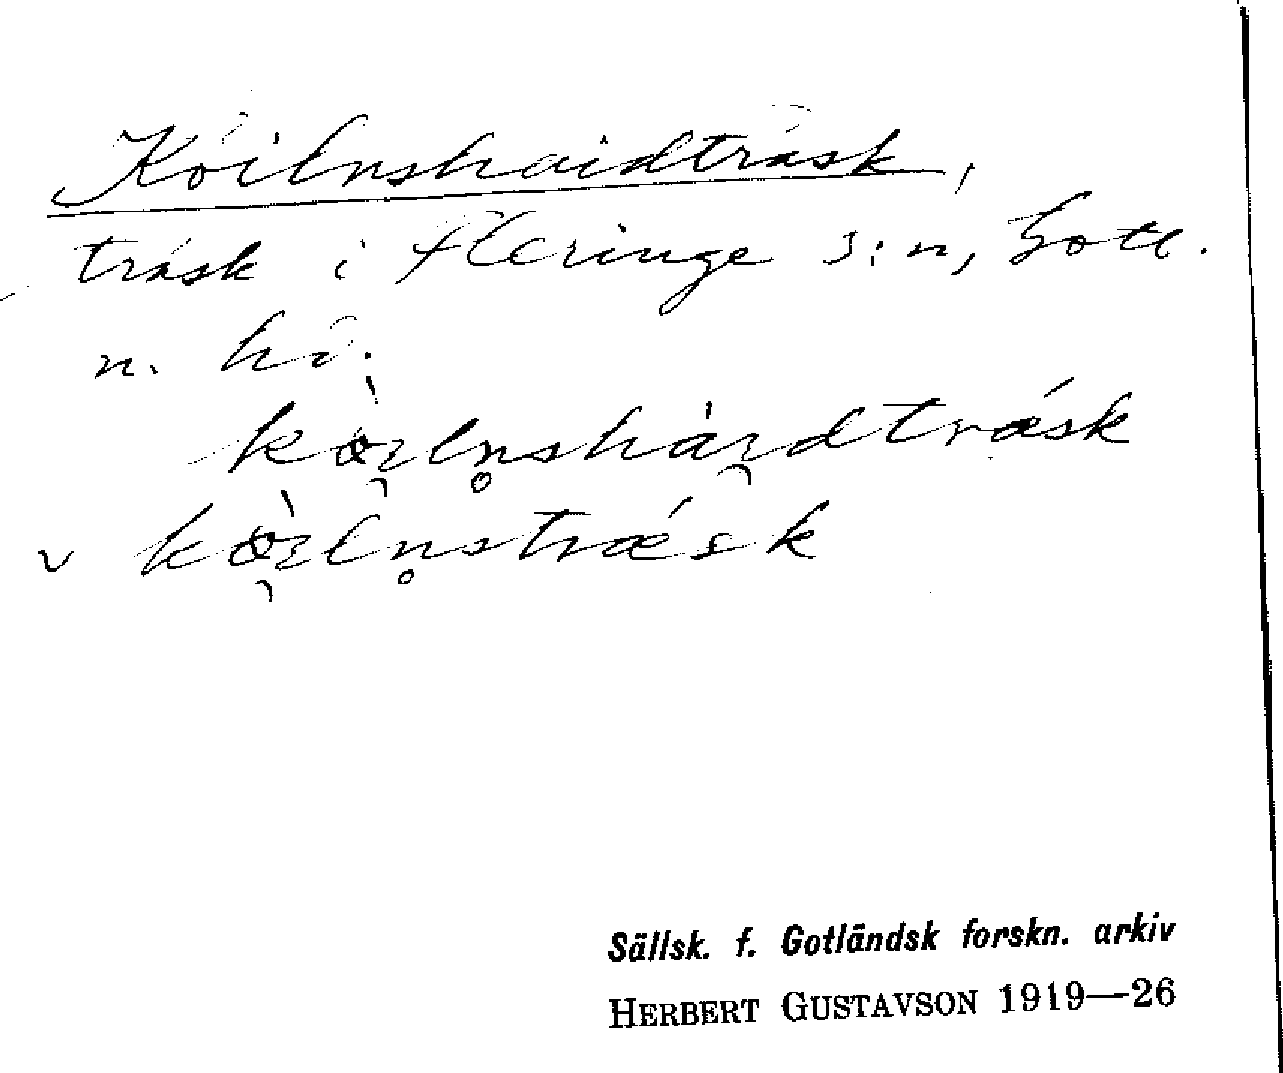 Köilnshaidträsk,
träsk i Fleringe s:n, Gotl.
n. hd.
kòi̯ln̥shài̯dtrǽsk
v kòi̯ln̥strǽsk
Sällsk. f. Gotländsk forskn. arkiv
HERBERT GUSTAVSON 1919—26